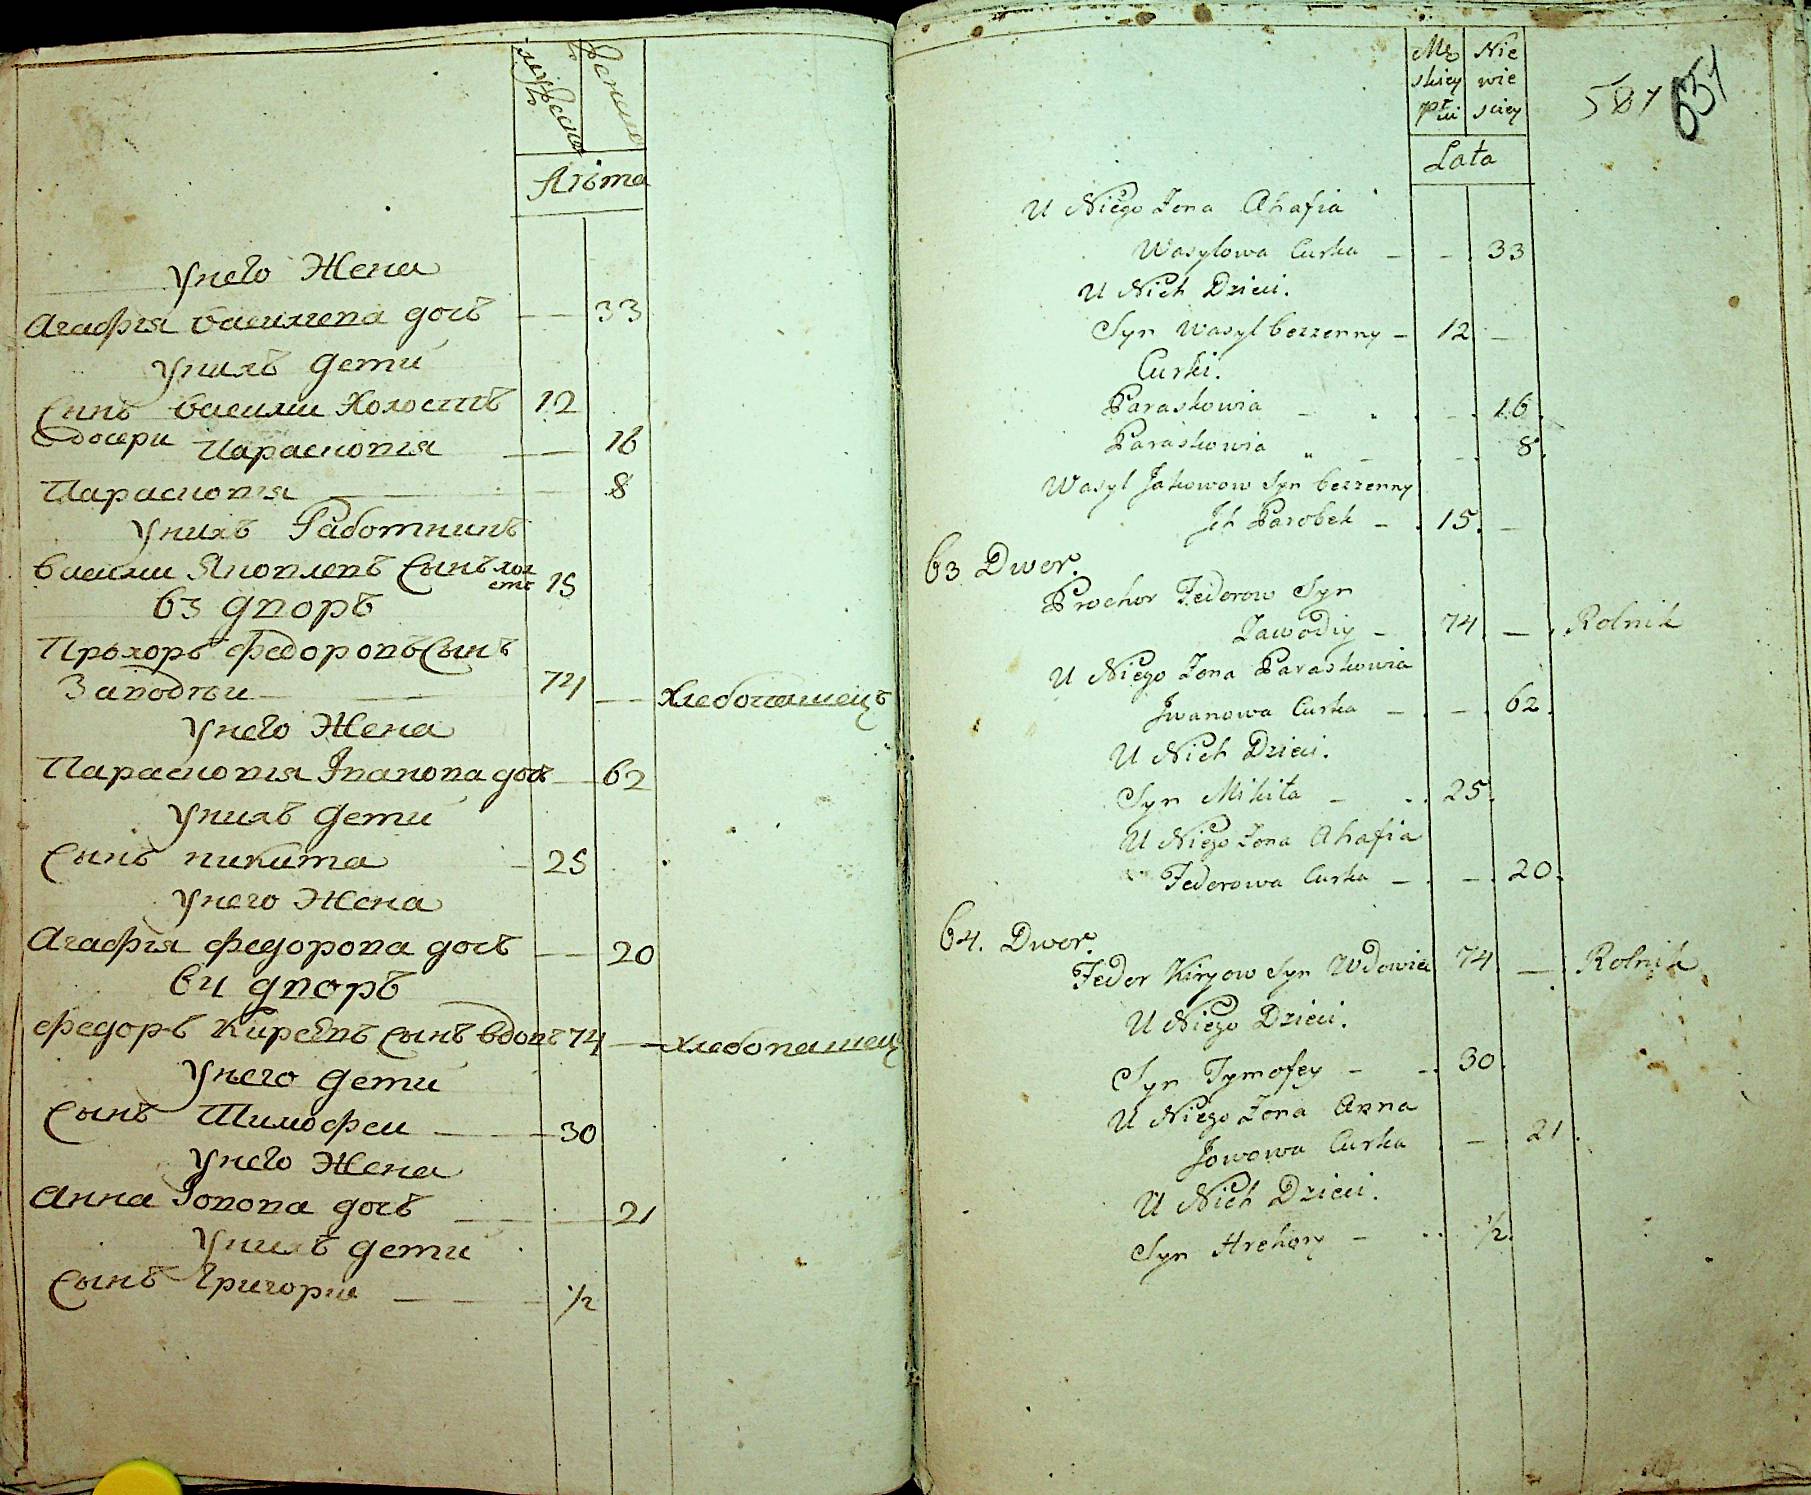 мужеска
женска
Лѣта
Унего Жена
Агафия василева дочъ — — 33
Унихъ дети
Сынъ васили холостъ 12
Вдосери Парасковия — — 16
Парасковия — — 8
Унихъ Работникъ
Васили Яковлевъ Сынъ хол
стъ 15
63 дворъ
Прохоръ Федоровъ Сынъ
Заводни — — 74 — хлебопашецъ
Унего Жена
Парасковия Iванова дочъ — 62
Унихъ дети
Сынъ никита — 25
Унего Жена
Агафия федорова дочъ — — 20
64 дворъ
федоръ Киреевъ сынъ вдовъ 74 — хлебопашецъ
Унего дети
Сынъ Тимофеи — 30
Унего Жена
Анна Iовова дочъ — — 21
Унихъ дети
Сынъ Григори — — 1/2
Mę Nie
skiey wie
płci sciey
587 651
Lata
U Niego Zona Ahafia
Wasylowa Curka — — 33
U Nich Dzieci.
Syn Wasyl bezzenny — 12 —
Curki.
Paraskowia — — 16.
Paraskowia „ — — 8.
Wasyl Jakowow Syn bezzenny
Ich Parobek — 15. —
63 Dwor.
Prochor Fedorow Syn
Zawodiy — 74. — Rolnik
U Niego Zona Paraskowia
Jwanowa Curka — — 62.
U Nich Dzieci.
Syn Mikita — 25.
U Niego Zona Ahafia
Fedorowa Curka — — 20.
64. Dwor.
Fedor Kiryow Syn Wdowiec 74. — Rolnik
U Niego Dzieci.
Syn Tymofey — 30.
U Niego Zona Anna
Jowowa Curka — 21.
U Nich Dzieci.
Syn Hrehory — 1/2.